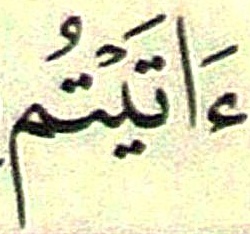 ءَاتَيْتُم